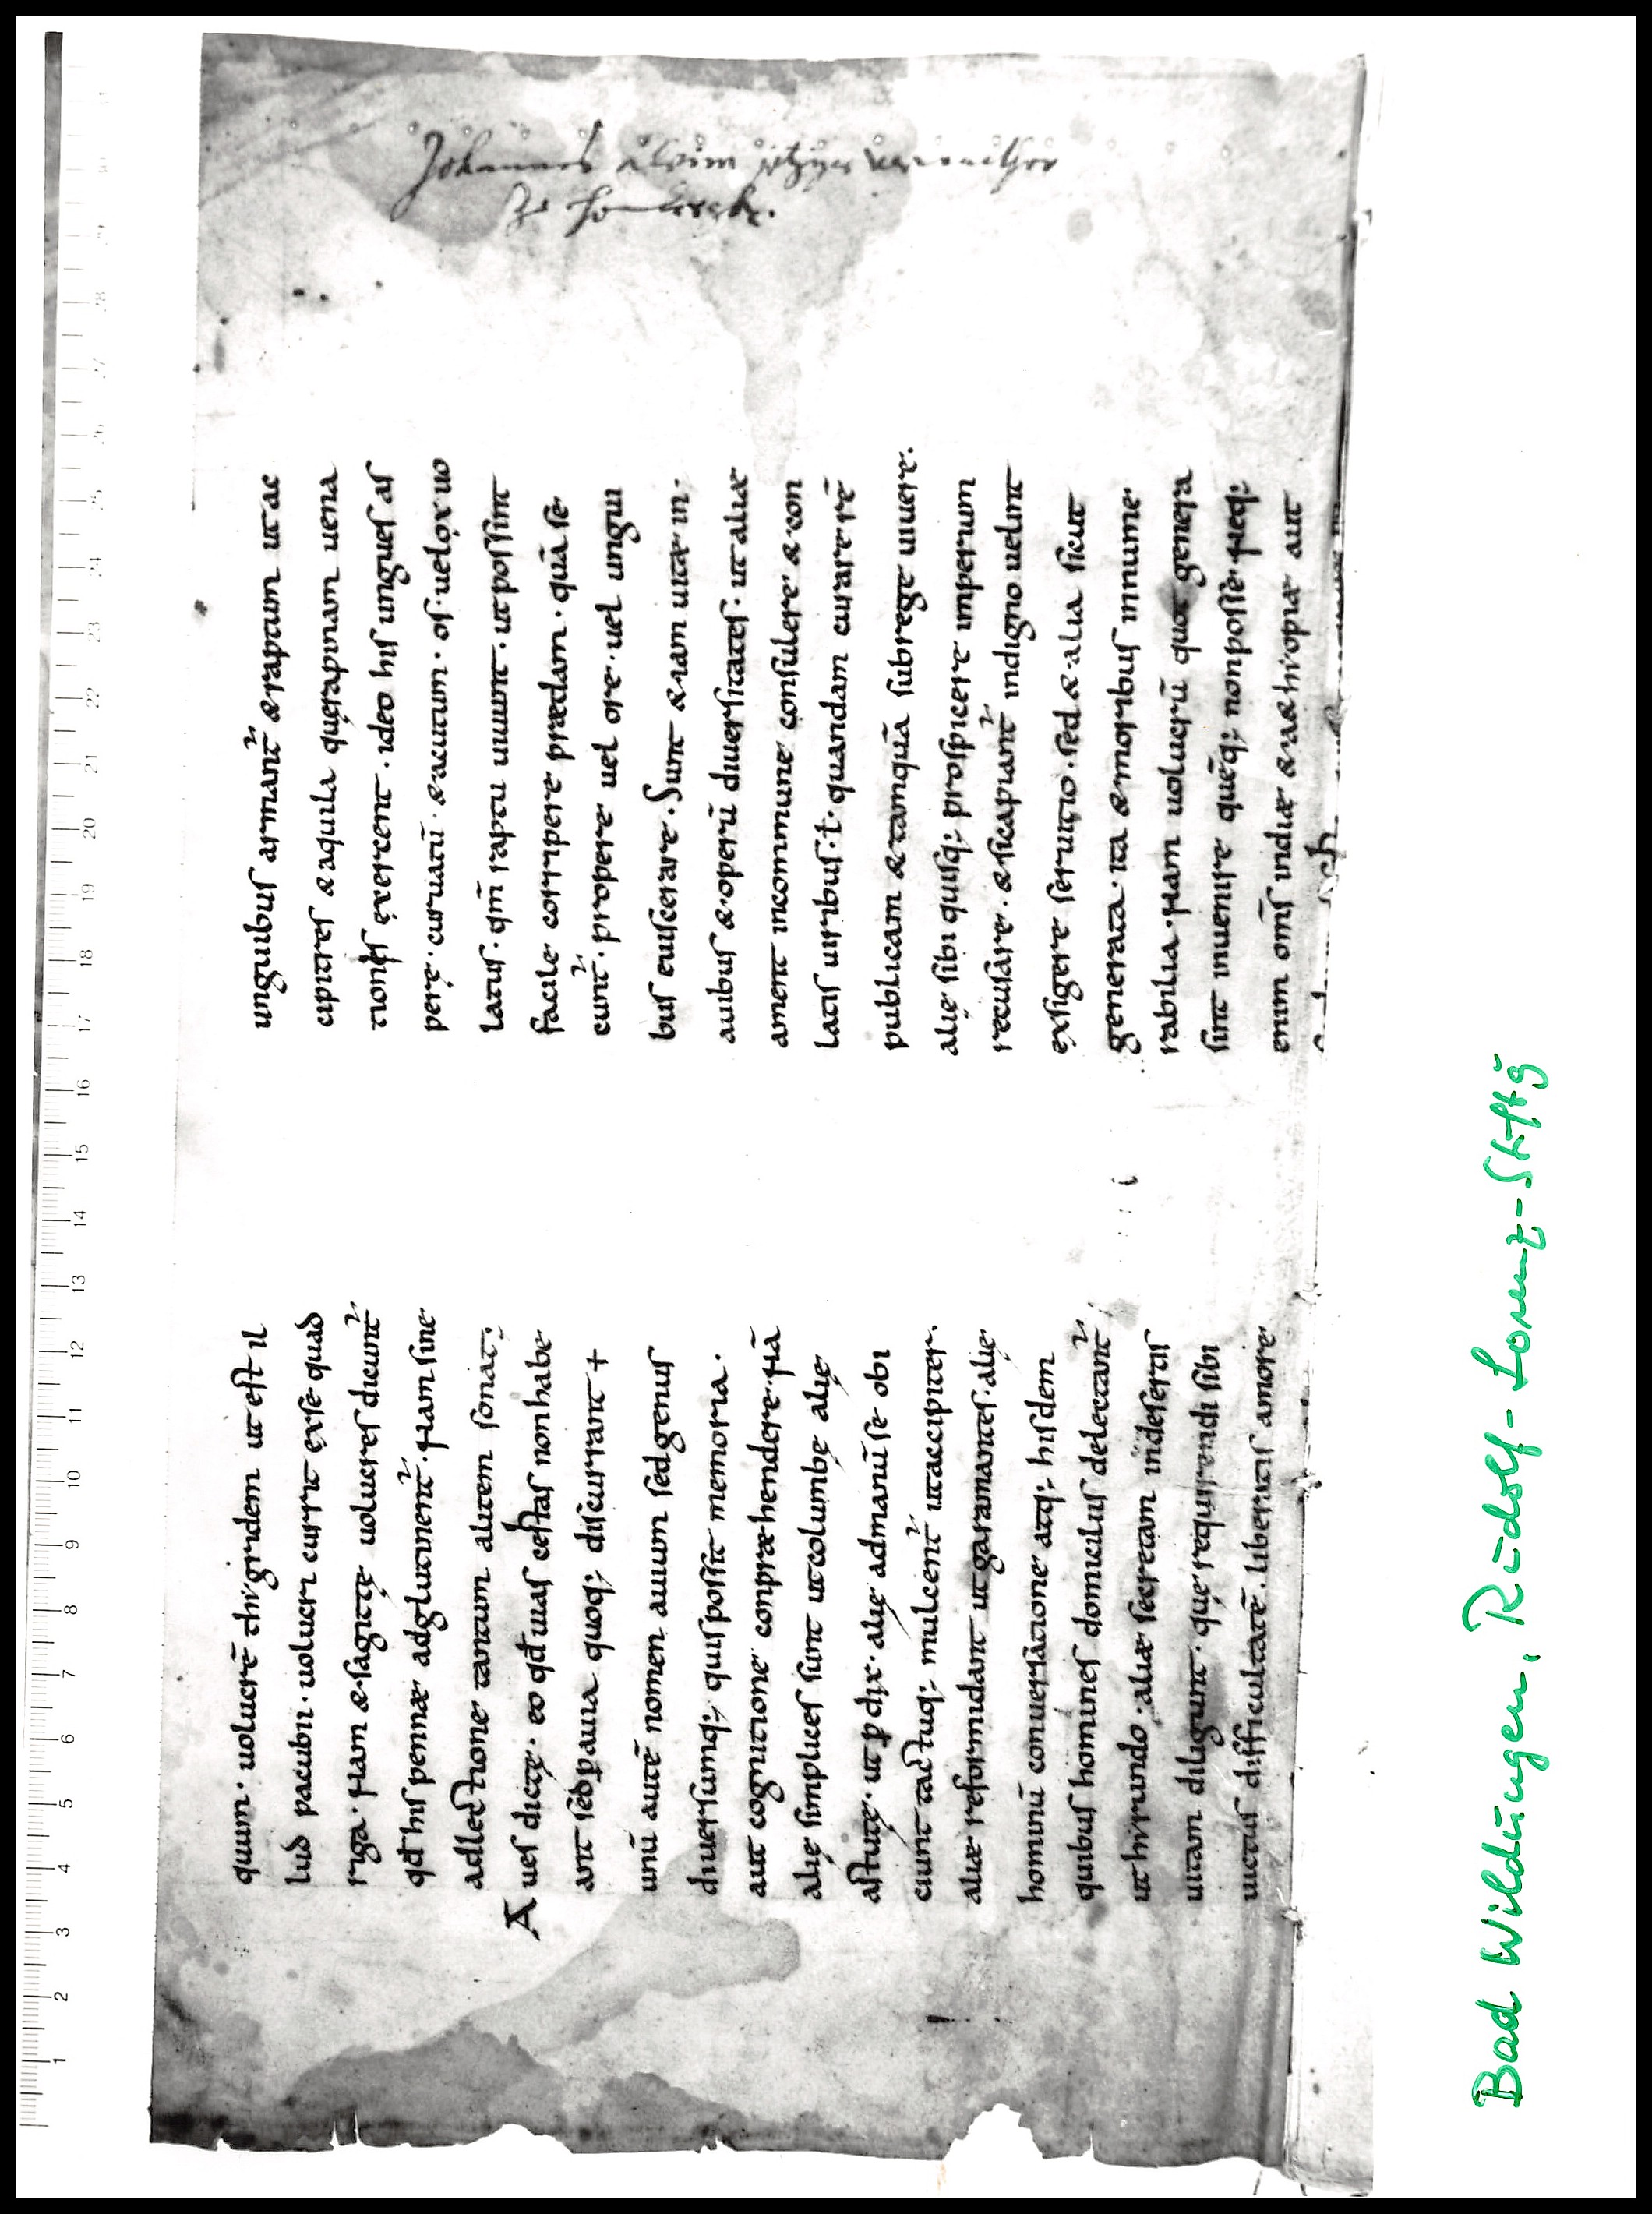 quum · uolucrē thigridem ut est il
lud pacubii · uolucri currit exse quad
riga · Nam & sagittę uolucres dicunt᷑
qđ his pennæ adglutinent᷑ · Nam sine
adlectione tantum alitem sonat ·
Aues dictę · eo qđ uias cestas non habe
ant sed ꝑ auia quoq; discurrant +
unū autē nomen auium sed genus
diuersumq; qui possit memoria ·
aut cognitione conpræhendere · Nā
alię simplices sunt ut columbę alię
astutę · ut ꝑdix · alię ad manū se obi
ciunt tactuq; mulcent᷑ ut accipiter ·
aliæ reformidant ut garamantes · alię
hominū conuersatione atq; hisdem
quibus homines domiciliis delectant᷑
ut hirundo · aliæ secretam in desertis
uitam diligunt · quę requirendi sibi
uictus difficultatē · libertatis amore
unguibus armant᷑ & raptum ut ac
cipitres & aquila que rapinam uena
tionis exercent · ideo his ungues as
perę · curuatū · & acutum · os · uelox uo
latus · qm̄ raptu uiuunt · ut possint
facile corripere prædam · quā se
cunt᷑ · propere uel ore · uel ungui
bus euiscerare · Sunt & iam uitæ in ·
auibus & operū diuersitates · ut aliæ
ament in commune consulere & con
latis uiribus · ł · quandam curare rē
publicam & tamquā sub rege uiuere ·
alię sibi quisq; prospicere imperium
recusare · & si capiant᷑ indigno uelint
exsigere seruitio · Sed & alia sicut
generata · ita & moribus innume
rabilia · Nam uolucrū quot genera
sint inuenire quēq; non posse · Neq;
enim om̄s indiæ & aethiopiæ aut
Johannes
Bad Wildungen, Rudolf-Lorenz-Stiftg
1 2 3 4 5 6 7 8 9 10 11 12 13 14 15 16 17 18 19 20 21 22 23 24 25 26 27 28 29 30 31